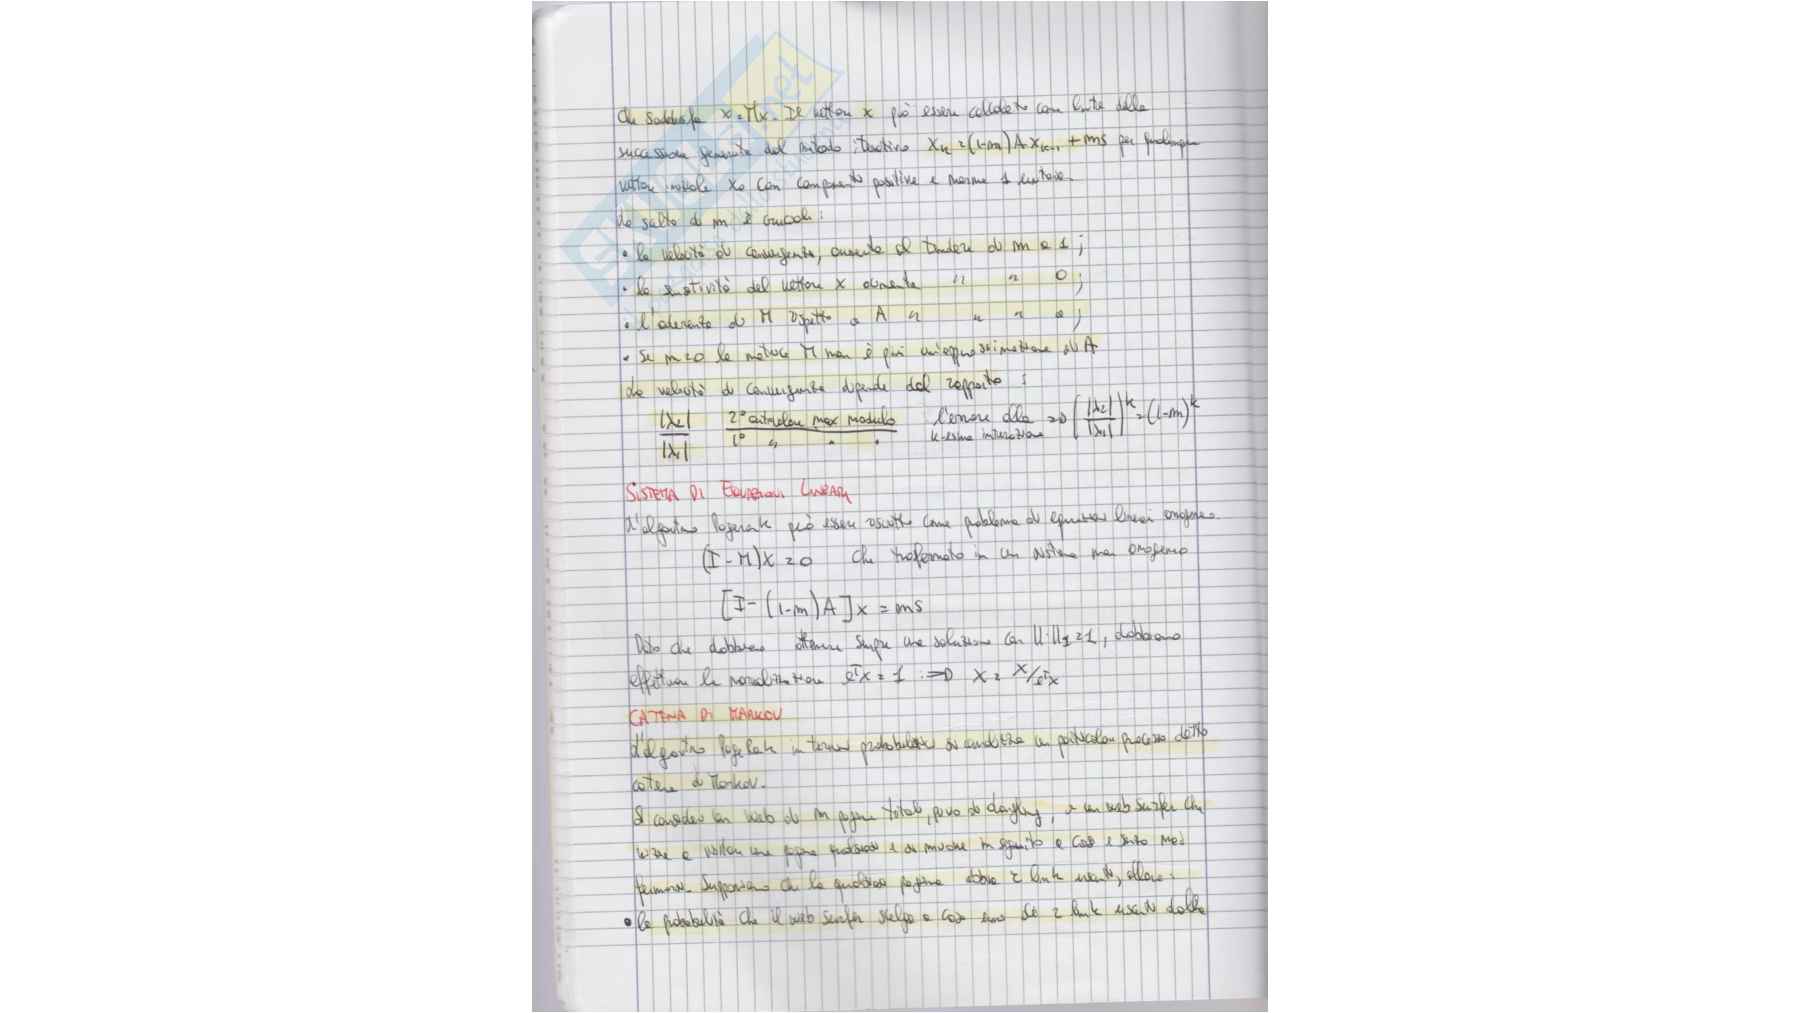 che soddisfa x=Mx. Il vettore x può essere calcolato come limite della
successione generata dal metodo iterativo x_k=(1-m)A x_{k-1} + ms per qualunque
vettore iniziale x_0 con componenti positive e norma 1 unitaria.
La scelta di m è cruciale:
• la velocità di convergenza, aumenta al tendere di m a 1;
• la sensitività del vettore x aumenta " " 0;
• l'aderenza di M rispetto a A " " " 0;
• se m=0 la matrice M non è più un'approssimazione di A
La velocità di convergenza dipende dal rapporto:
|λ2| / |λ1| 2° autovalore max modulo / 1° " " " l'errore alla k-esima => (|λ2| / |λ1|)^k = (1-m)^k
SISTEMA DI EQUAZIONI LINEARI
L'algoritmo Pagerank può essere come problema di equazioni lineari omogenee
(I-M)x=0 che trasformato in un sistema non omogeneo
[I-(1-m)A]x = ms
Dato che dobbiamo ottenere sempre una soluzione con ||·||_1=1, dobbiamo
effettuare la normalizzazione e^T x = 1 :=> x = x/e^T x
CATENA DI MARKOV
L'algoritmo PageRank in termini probabilistici un particolare processo detto
catena di Markov.
Si consideri un web di m pagine totali, privo di dangling, e un web surfer che
inizia a visitare una pagina qualsiasi e si muove in seguito a caso e senza mai
terminare. Supponiamo che la qualsiasi pagina abbia r link uscenti, allora:
• la probabilità che il web surfer scelga a caso uno dei r link uscenti dalla